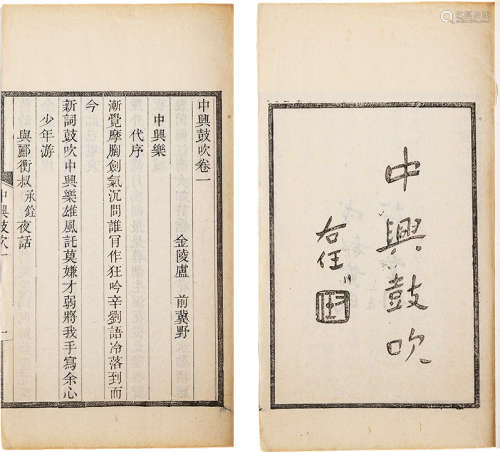 中興鼓吹
右任
中興鼓吹卷一
金陵盧 前冀野
中興樂
代序
漸覺摩胸劍氣沉問誰肎作狂吟辛劉語冷落到而
今
新詞鼓吹中興樂雄風託莫嫌才弱將我手寫余心
少年游
與酈衡叔承銓夜話
中興鼓吹一